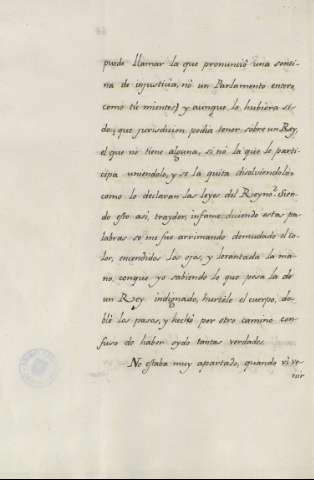 puede llamar la que pronunciò una senti-
na de injusticia, nò un Parlamento entero,
como tù mientes) y aunque lo hubiera si-
do; que jurisdicion podia tener sobre un Rey,
el que no tiene alguna, si nò la que le parti-
cipa uniendolo, y se la quita disolviendolo:
como lo declaran las leyes del Reyno? Sien-
do esto asi, traydor, infame diciendo estas pa-
labras se me fue arrimando demudado el co-
lor, encendidos los ojos, y levantada la ma-
no, conque yo sabiendo lo que pesa la de
un Rey indignado, hurtèle el cuerpo, do-
blè los pasos, y hechè por otro camino con-
fuso de haber oydo tantas verdades.
No estaba muy apartado, quando vi ve-
nir